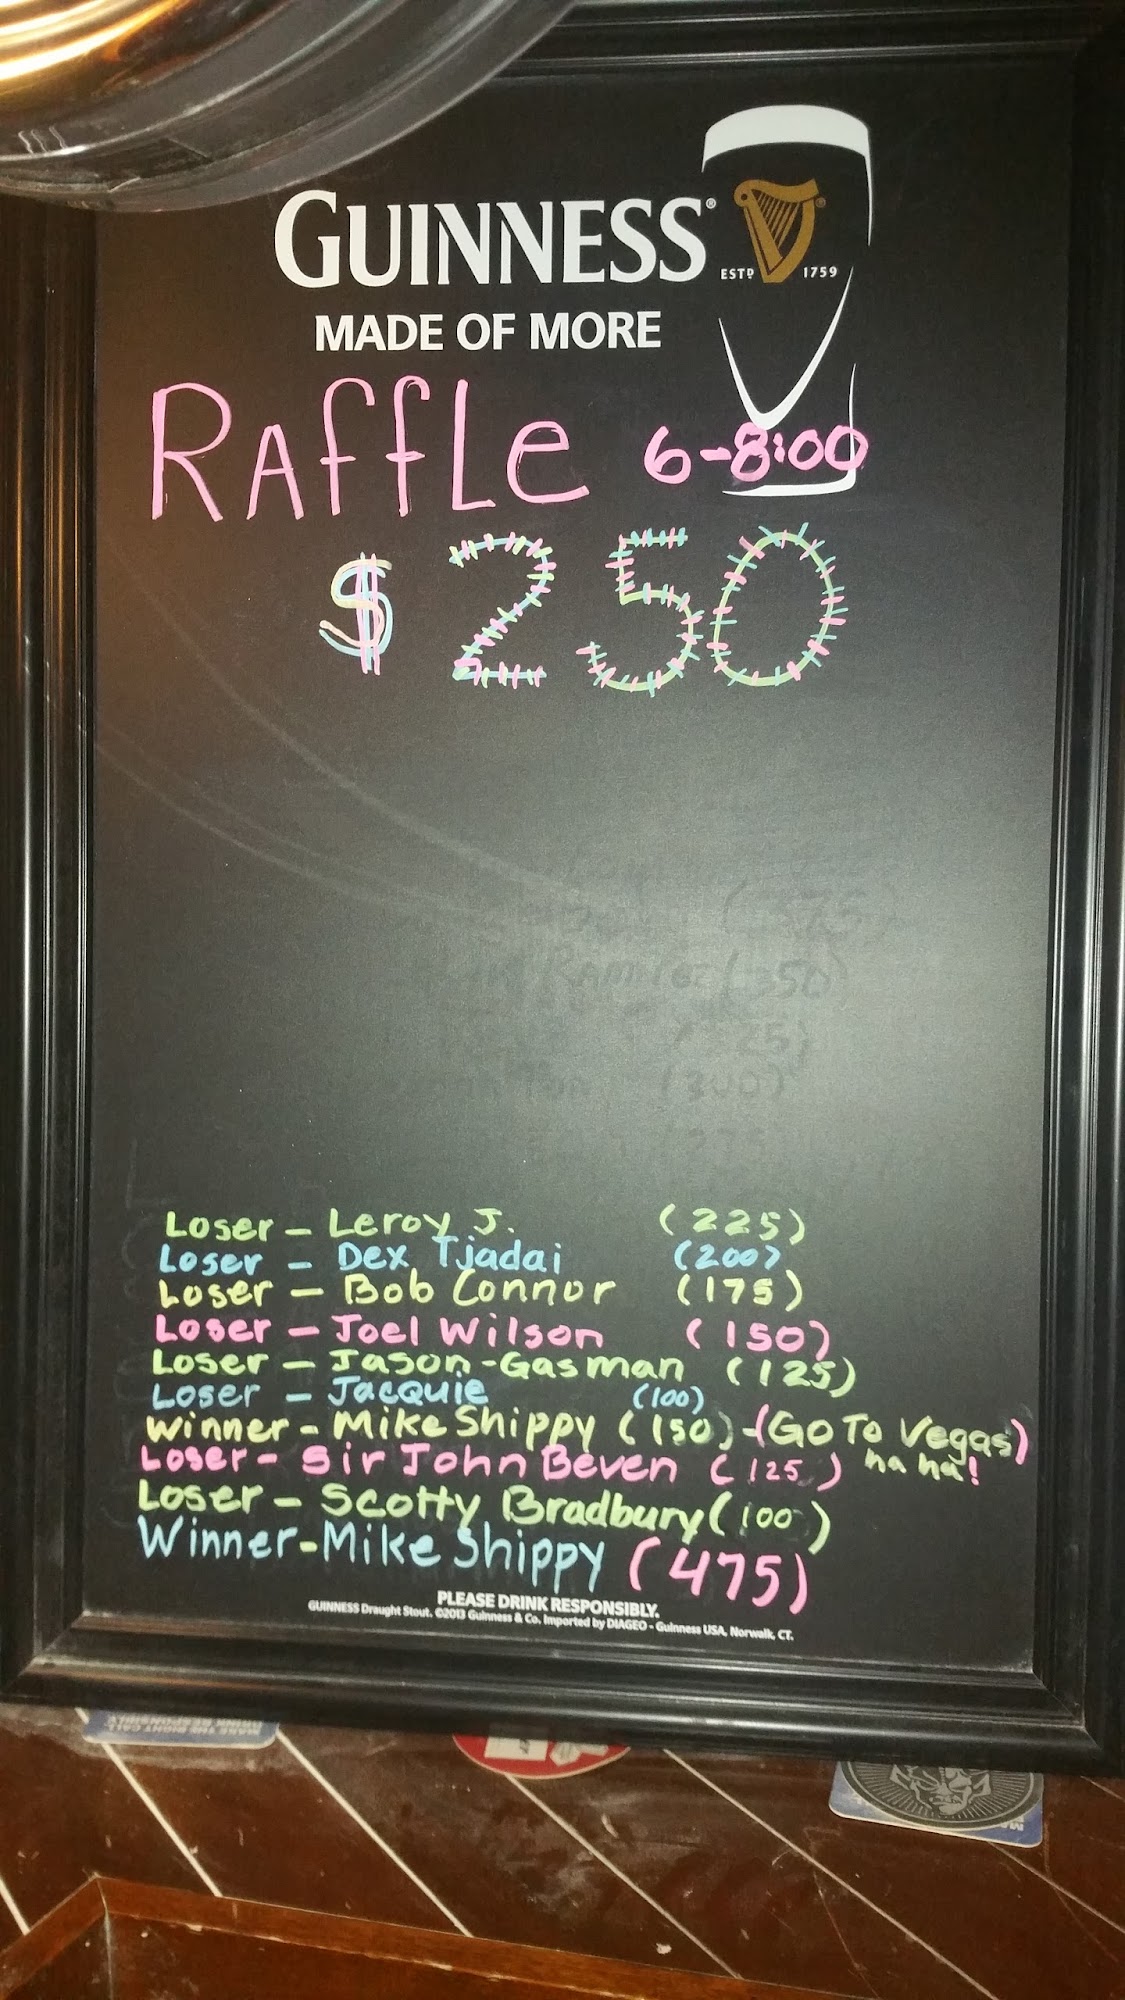 GUINNESS®
ESTD 1759
MADE OF MORE
RAffLe 6-8:00
$250
(375)
RAMIREZ (350)
(325)
(300)
(275)
Loser - Leroy J. (225)
Loser - Dex Tjadai (200)
Loser - Bob Connor (175)
Loser - Joel Wilson (150)
Loser - Jason-Gasman (125)
Loser - Jacquie (100)
Winner - Mike Shippy (150) - (Go To Vegas)
ha ha!
Loser - Sir John Beven (125)
Loser - Scotty Bradbury (100)
Winner - Mike Shippy (475)
PLEASE DRINK RESPONSIBLY.
GUINNESS Draught Stout. ©2013 Guinness & Co. Imported by DIAGEO - Guinness USA, Norwalk, CT.
MAKE THE RIGHT CALL
DRINK RESPONSIBLY